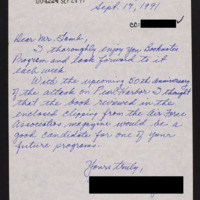 Sept. 17, 1991
cc:
Dear Mr. Lamb,
I thoroughly enjoy your Booknotes
Program and look forward to it
each week.
With the upcoming 50th anniversary
of the attack on Pearl Harbor I thought
that the book reviewed in the
enclosed clipping from the Air Force
Association magazine would be a
good candidate for one of your
future programs.
Yours truly,